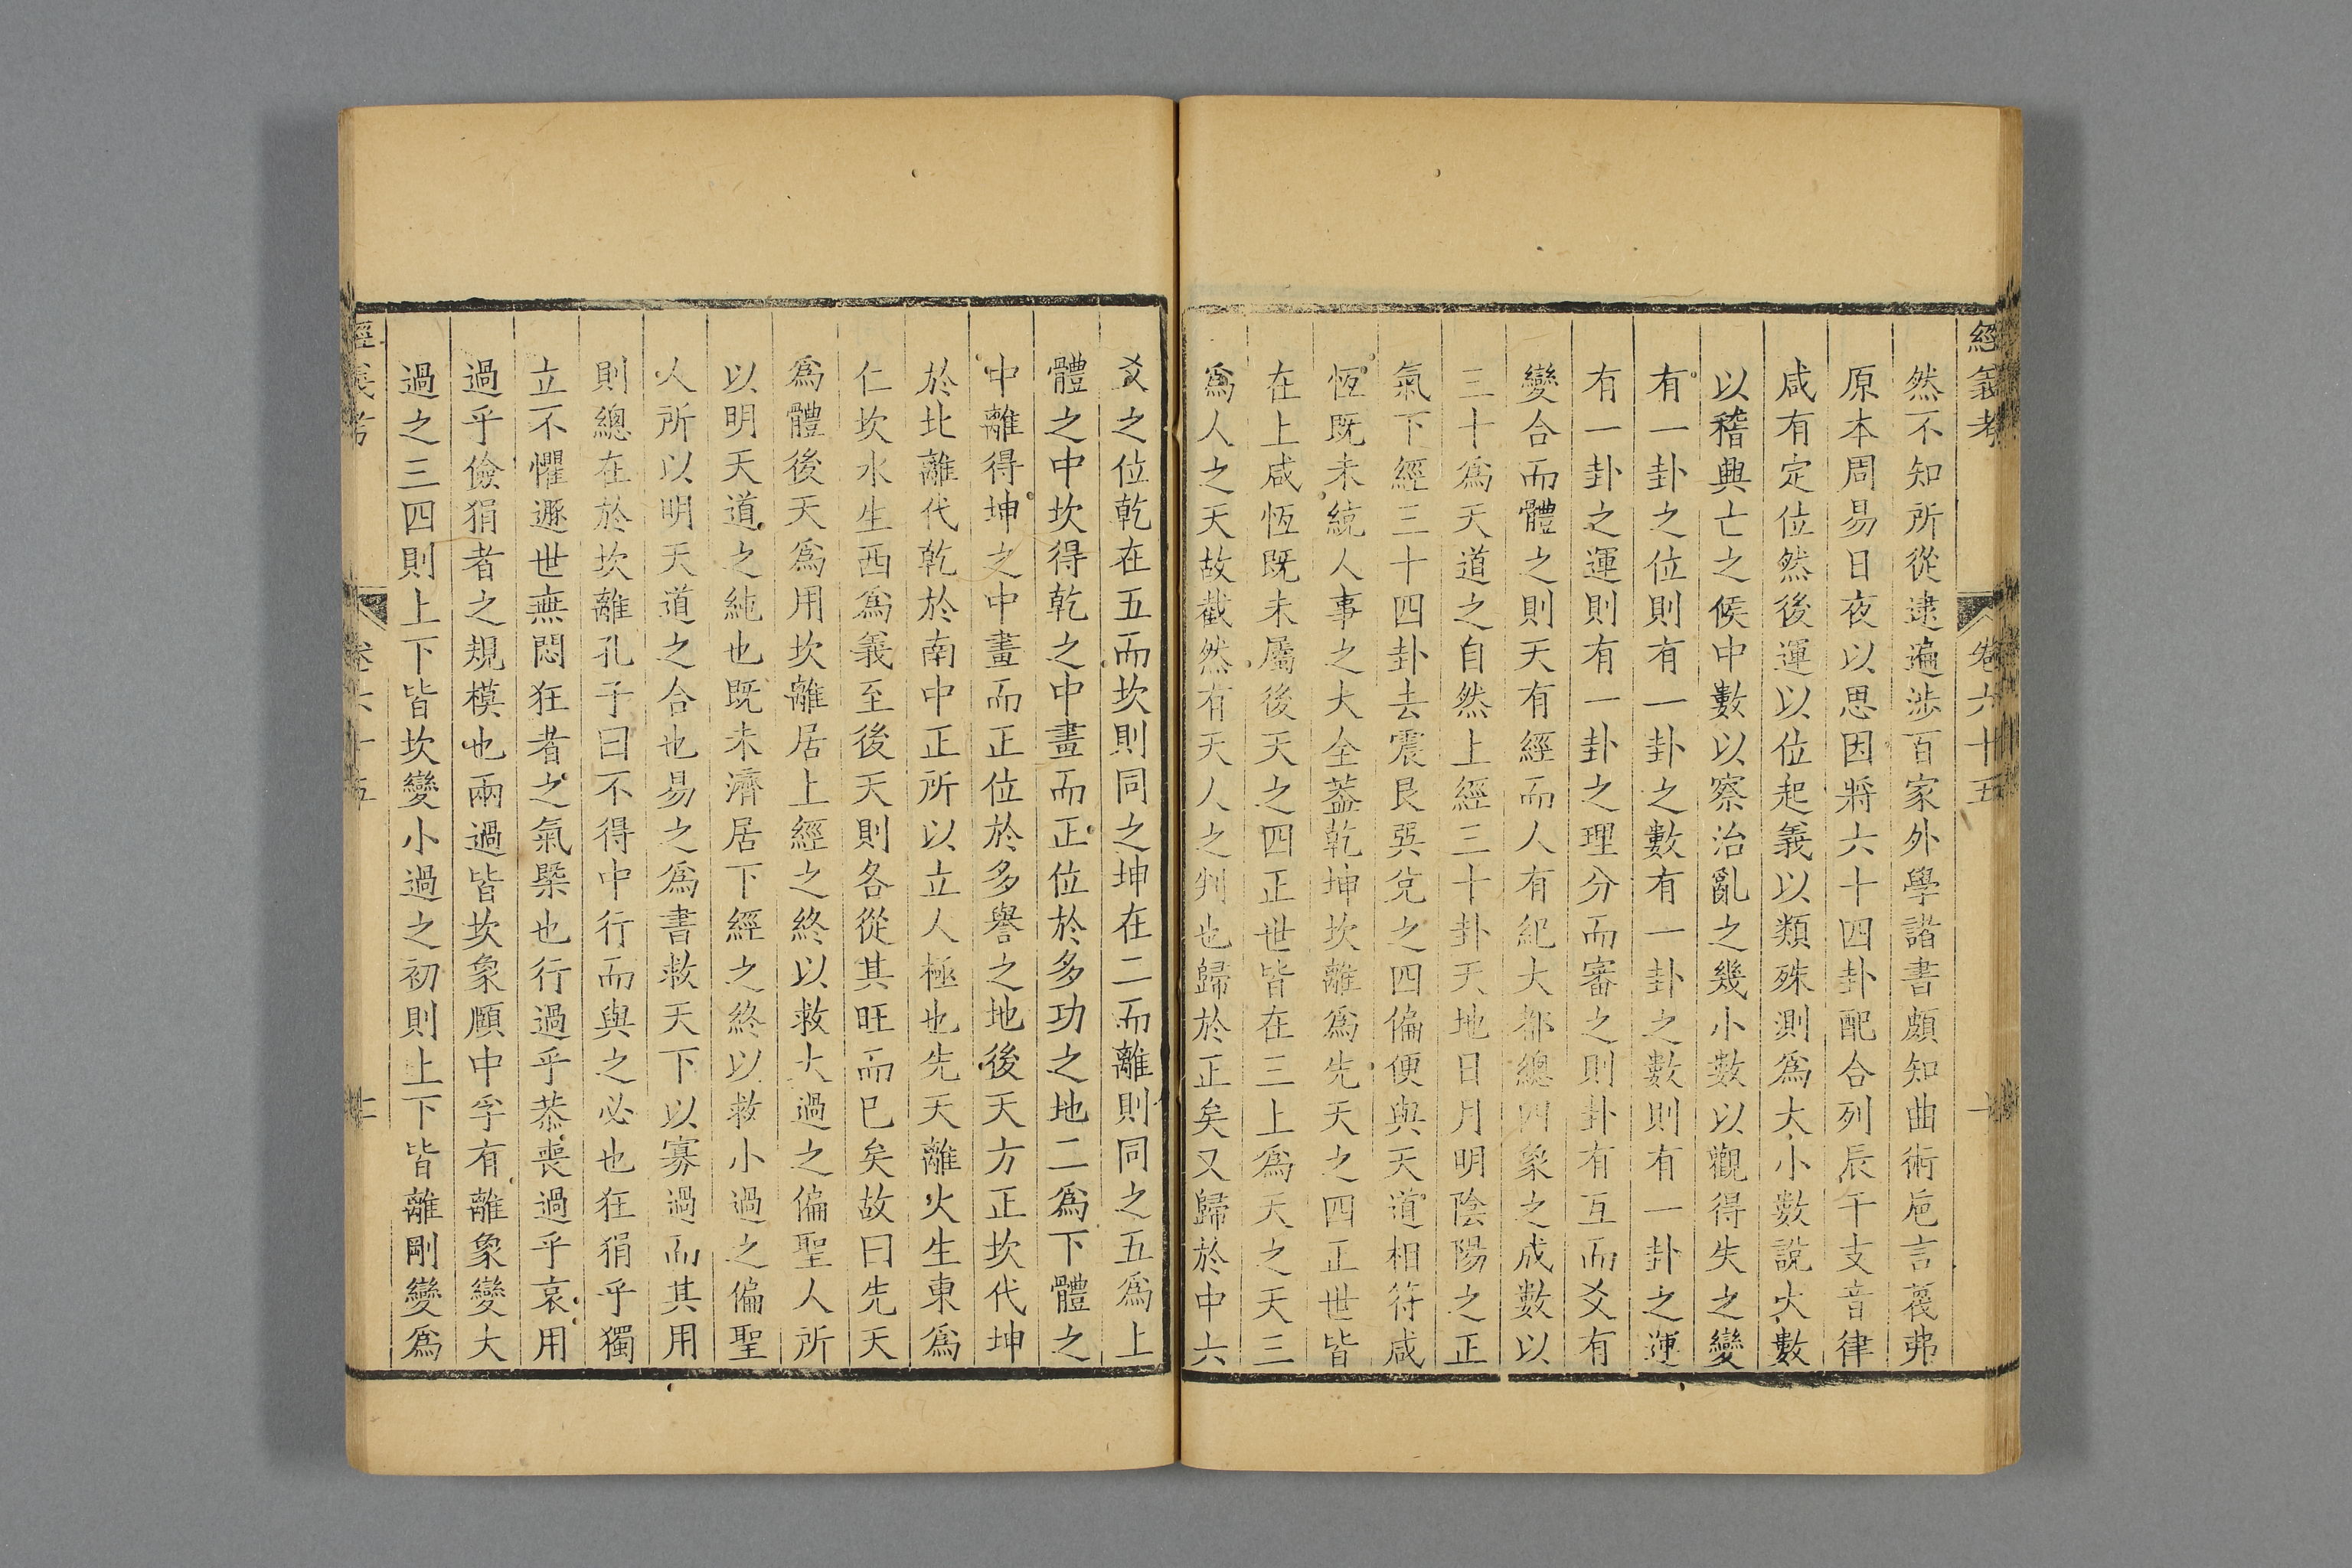 經義考
卷六十五
然不知所從逮遍涉百家外學諸書頗知曲術巵言蔑弗
原本周易日夜以思因將六十四卦配合列辰午支音律
咸有定位然後運以位起義以類殊測爲大小數說大數
以稽興亡之候中數以察治亂之幾小數以觀得失之變
有一卦之位則有一卦之數有一卦之數則有一卦之運
有一卦之運則有一卦之理分而審之則卦有互而爻有
變合而體之則天有經而人有紀大都總四象之成數以
三十爲天道之自然上經三十卦天地日月明陰陽之正
氣下經三十四卦去震艮巽兌之四偏便與天道相符咸
恆既未統人事之大全蓋乾坤坎離爲先天之四正世皆
在上咸恆既未屬後天之四正世皆在三上爲天之天三
爲人之天故截然有天人之判也歸於正矣又歸於中六
爻之位乾在五而坎則同之坤在二而離則同之五爲上
體之中坎得乾之中畫而正位於多功之地二爲下體之
中離得坤之中畫而正位於多譽之地後天方正坎代坤
於北離代乾於南中正所以立人極也先天離火生東爲
仁坎水生西爲義至後天則各從其旺而已矣故曰先天
爲體後天爲用坎離居上經之終以救大過之偏聖人所
以明天道之純也既未濟居下經之終以救小過之偏聖
人所以明天道之合也易之爲書救天下以寡過而其用
則總在於坎離孔子曰不得中行而與之必也狂狷乎獨
立不懼遯世無悶狂者之氣槩也行過乎恭喪過乎哀用
過乎儉狷者之規模也兩過皆坎象頤中孚有離象變大
過之三四則上下皆坎變小過之初則上下皆離剛變爲
經義考
卷六十五